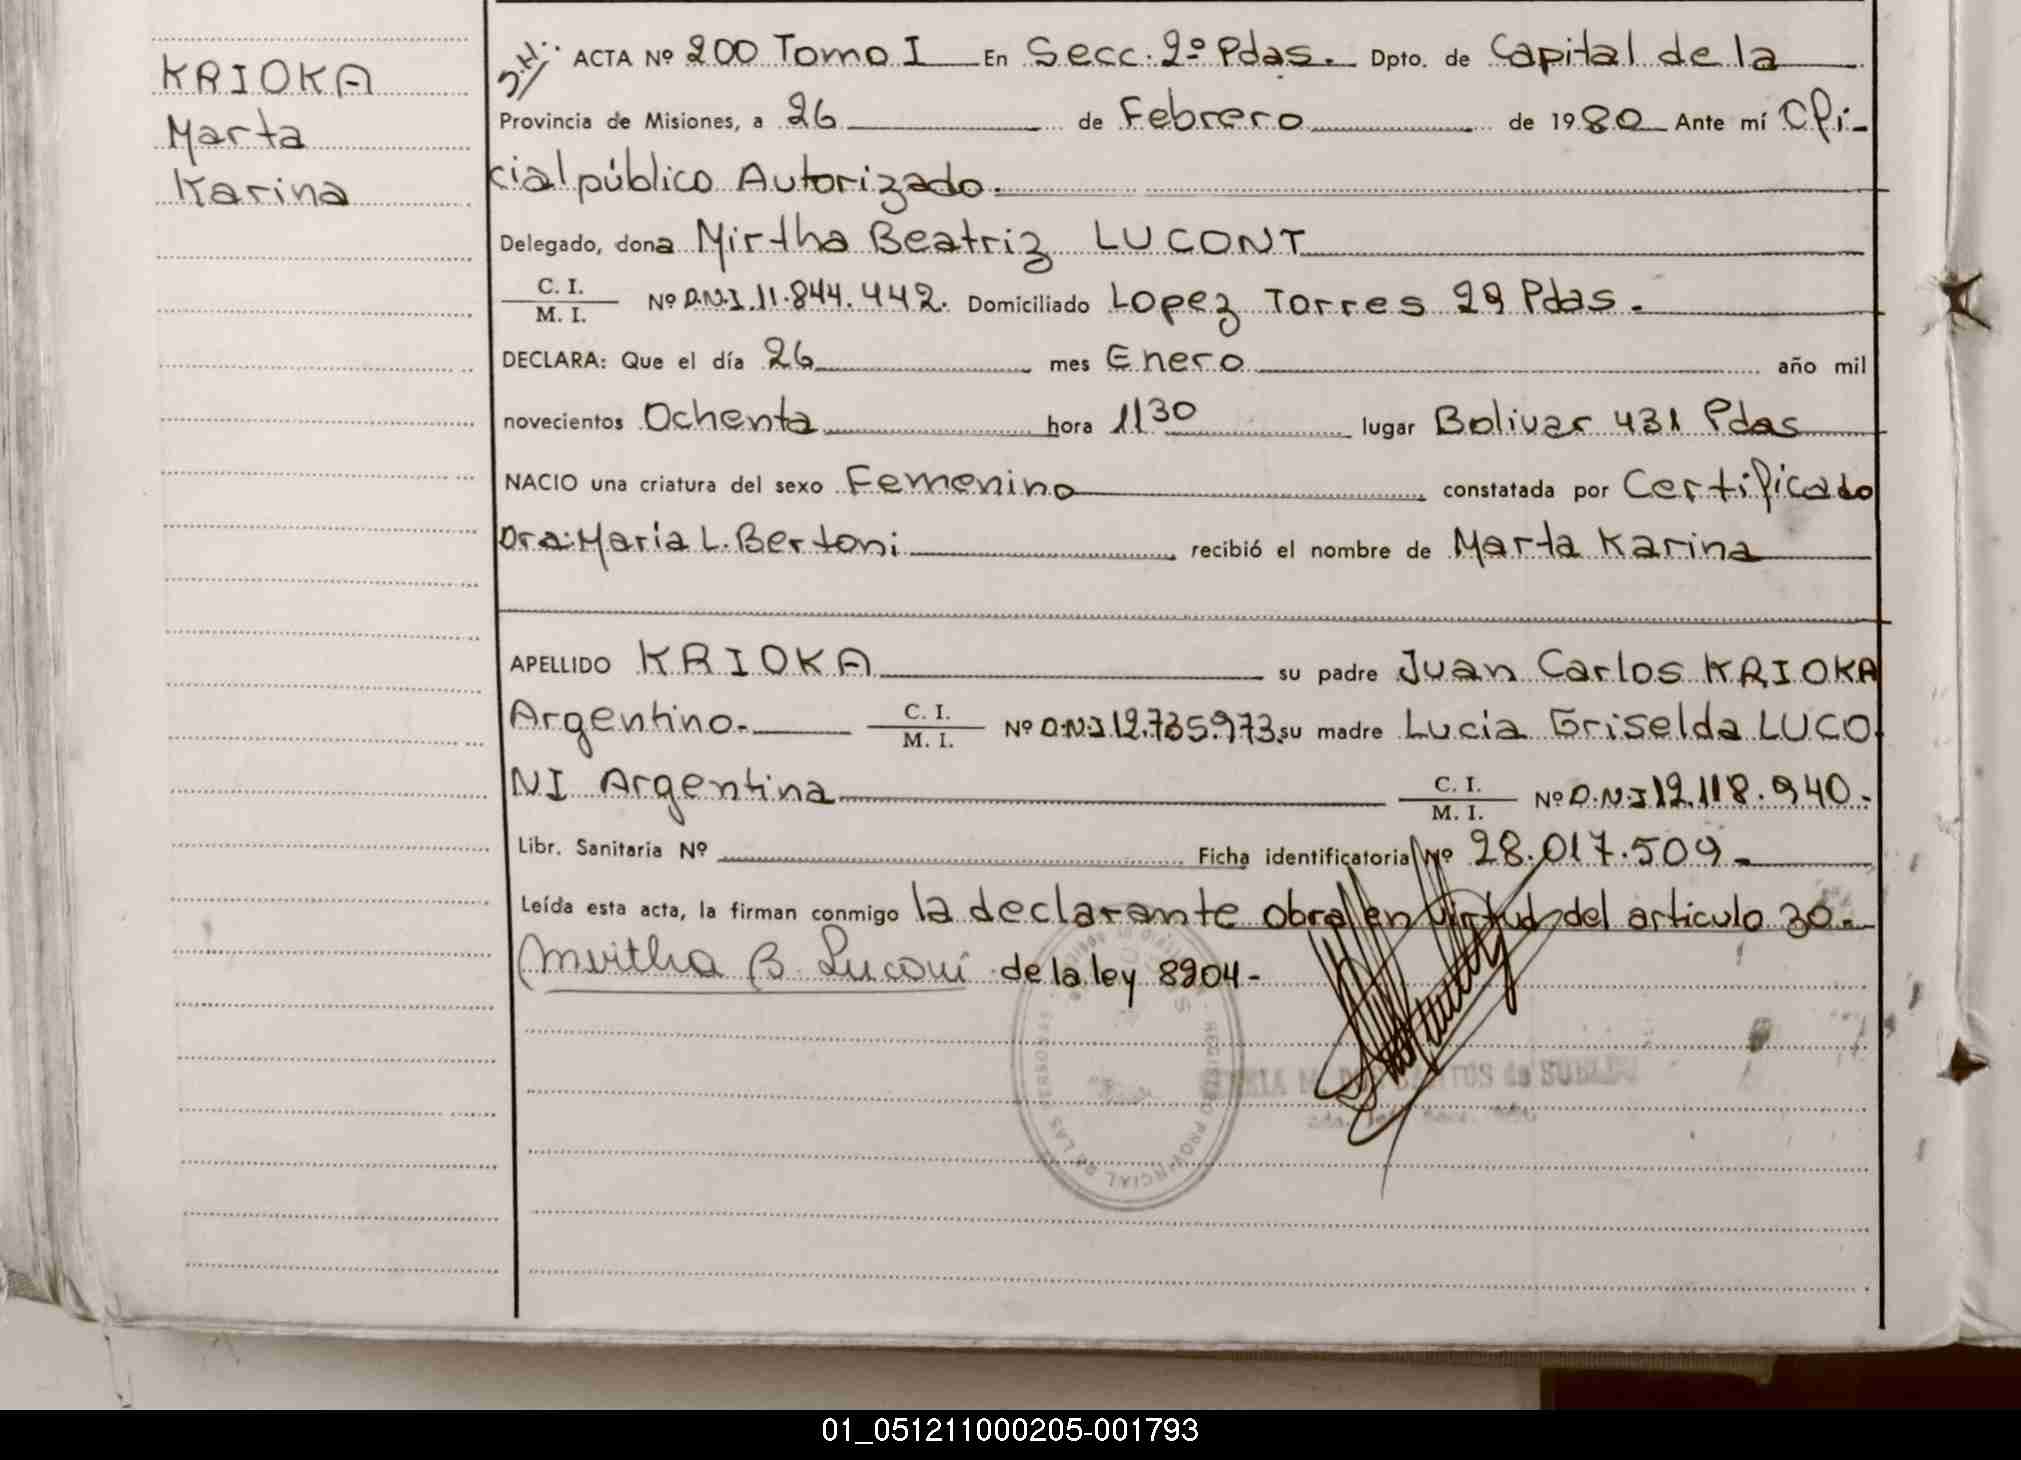 KRIOKA
Marta
Karina
S.H. ACTA Nº 200 Tomo I En Secc: 2º Pdas. Dpto. de Capital de la
Provincia de Misiones, a 26 de Febrero de 1980 Ante mí Ofi-
cial público Autorizado.
Delegado, dona Mirtha Beatriz LUCONI
C. I.
M. I. Nº D.N.I. 11.844.442. Domiciliado Lopez Torres 29 Pdas.
DECLARA: Que el día 26 mes Enero año mil
novecientos Ochenta hora 1130 lugar Bolivar 431 Pdas
NACIO una criatura del sexo Femenino constatada por Certificado
Dra: Maria L. Bertoni recibió el nombre de Marta Karina
APELLIDO KRIOKA su padre Juan Carlos KRIOKA
Argentino. C. I.
M. I. Nº D.N.I 12.735.973. su madre Lucia Griselda LUCO
NI Argentina C. I.
M. I. Nº D.N.I 12.118.940.
Libr. Sanitaria Nº Ficha identificatoria Nº 28.017.509
Leída esta acta, la firman conmigo la declarante obra en virtud del articulo 30.
Mirtha B. Luconi de la ley 8204-
REGISTRO PROVINCIAL DE LAS PERSONAS
SANTOS de
01_051211000205-001793